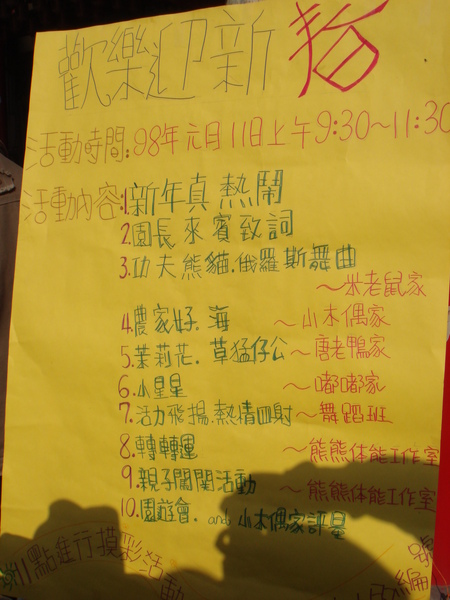 歡樂迎新
活動時間:98年元月11日上午9:30~11:30
活動內容:1.新年真熱鬧
2.園長來賓致詞
3.功夫熊貓.俄羅斯舞曲
~米老鼠家
4.農家好.海 ~小木偶家
5.茉莉花.草猛仔公 ~唐老鴨家
6.小星星 ~嘟嘟家
7.活力飛揚.熱情四射 ~舞蹈班
8.轉轉運 ~熊熊体能工作室
9.親子闖關活動 ~熊熊体能工作室
10.園遊會. and 小木偶家評
11點進行摸彩活動
編號